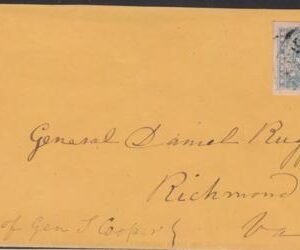 General Daniel Rug
Richmond
of Gen S Cooper
Va